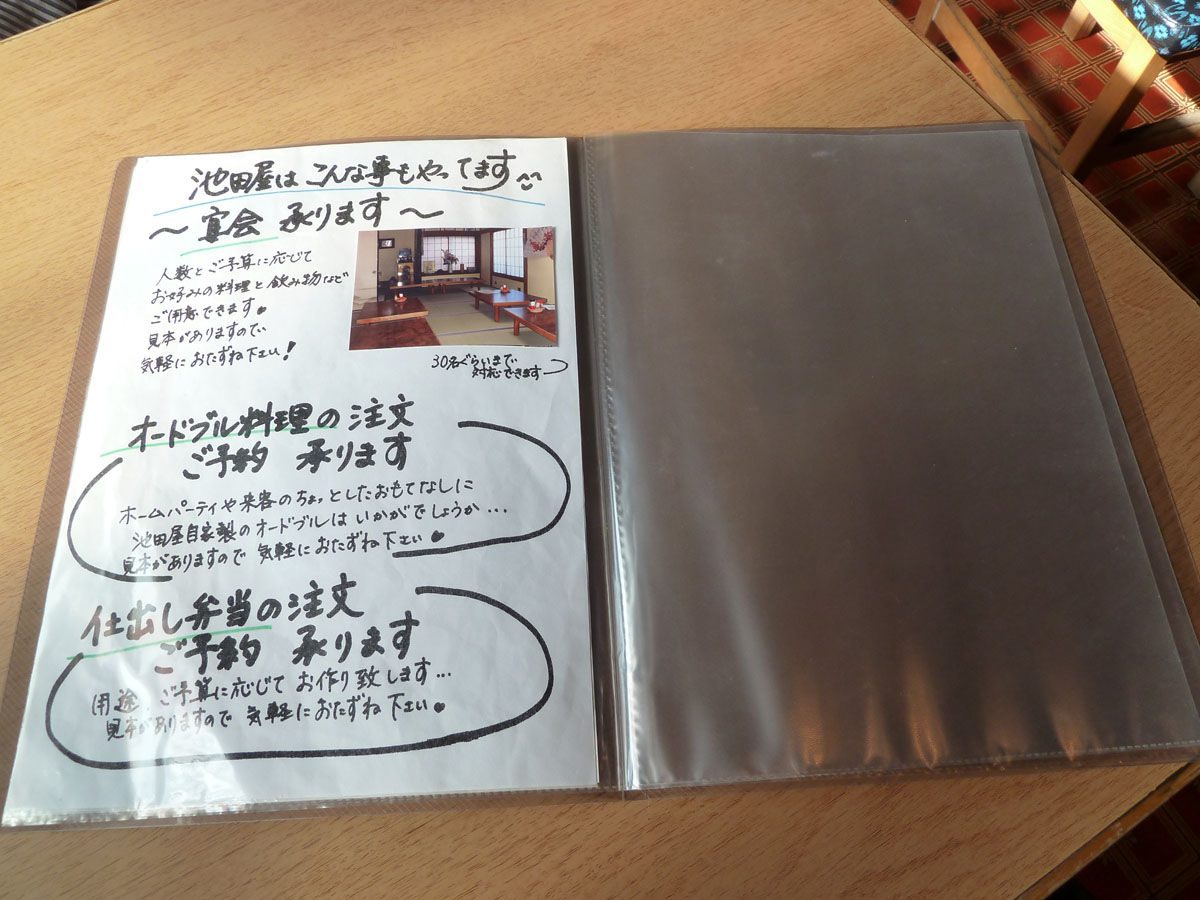 池田屋は こんな事もやってます
～ 宴会 承ります ～
人数と ご予算に応じて
お好みの料理と飲み物など
ご用意できます。
見本がありますので
気軽に おたずね下さい！
30名ぐらいまで
対応できます
オードブル料理の注文
ご予約 承ります
ホームパーティや来客のちょっとしたおもてなしに
池田屋自家製のオードブルは いかがでしょうか…
見本がありますので 気軽におたずね下さい。
仕出し弁当の注文
ご予約 承ります
用途、ご予算に応じて お作り致します…
見本がありますので 気軽におたずね下さい。